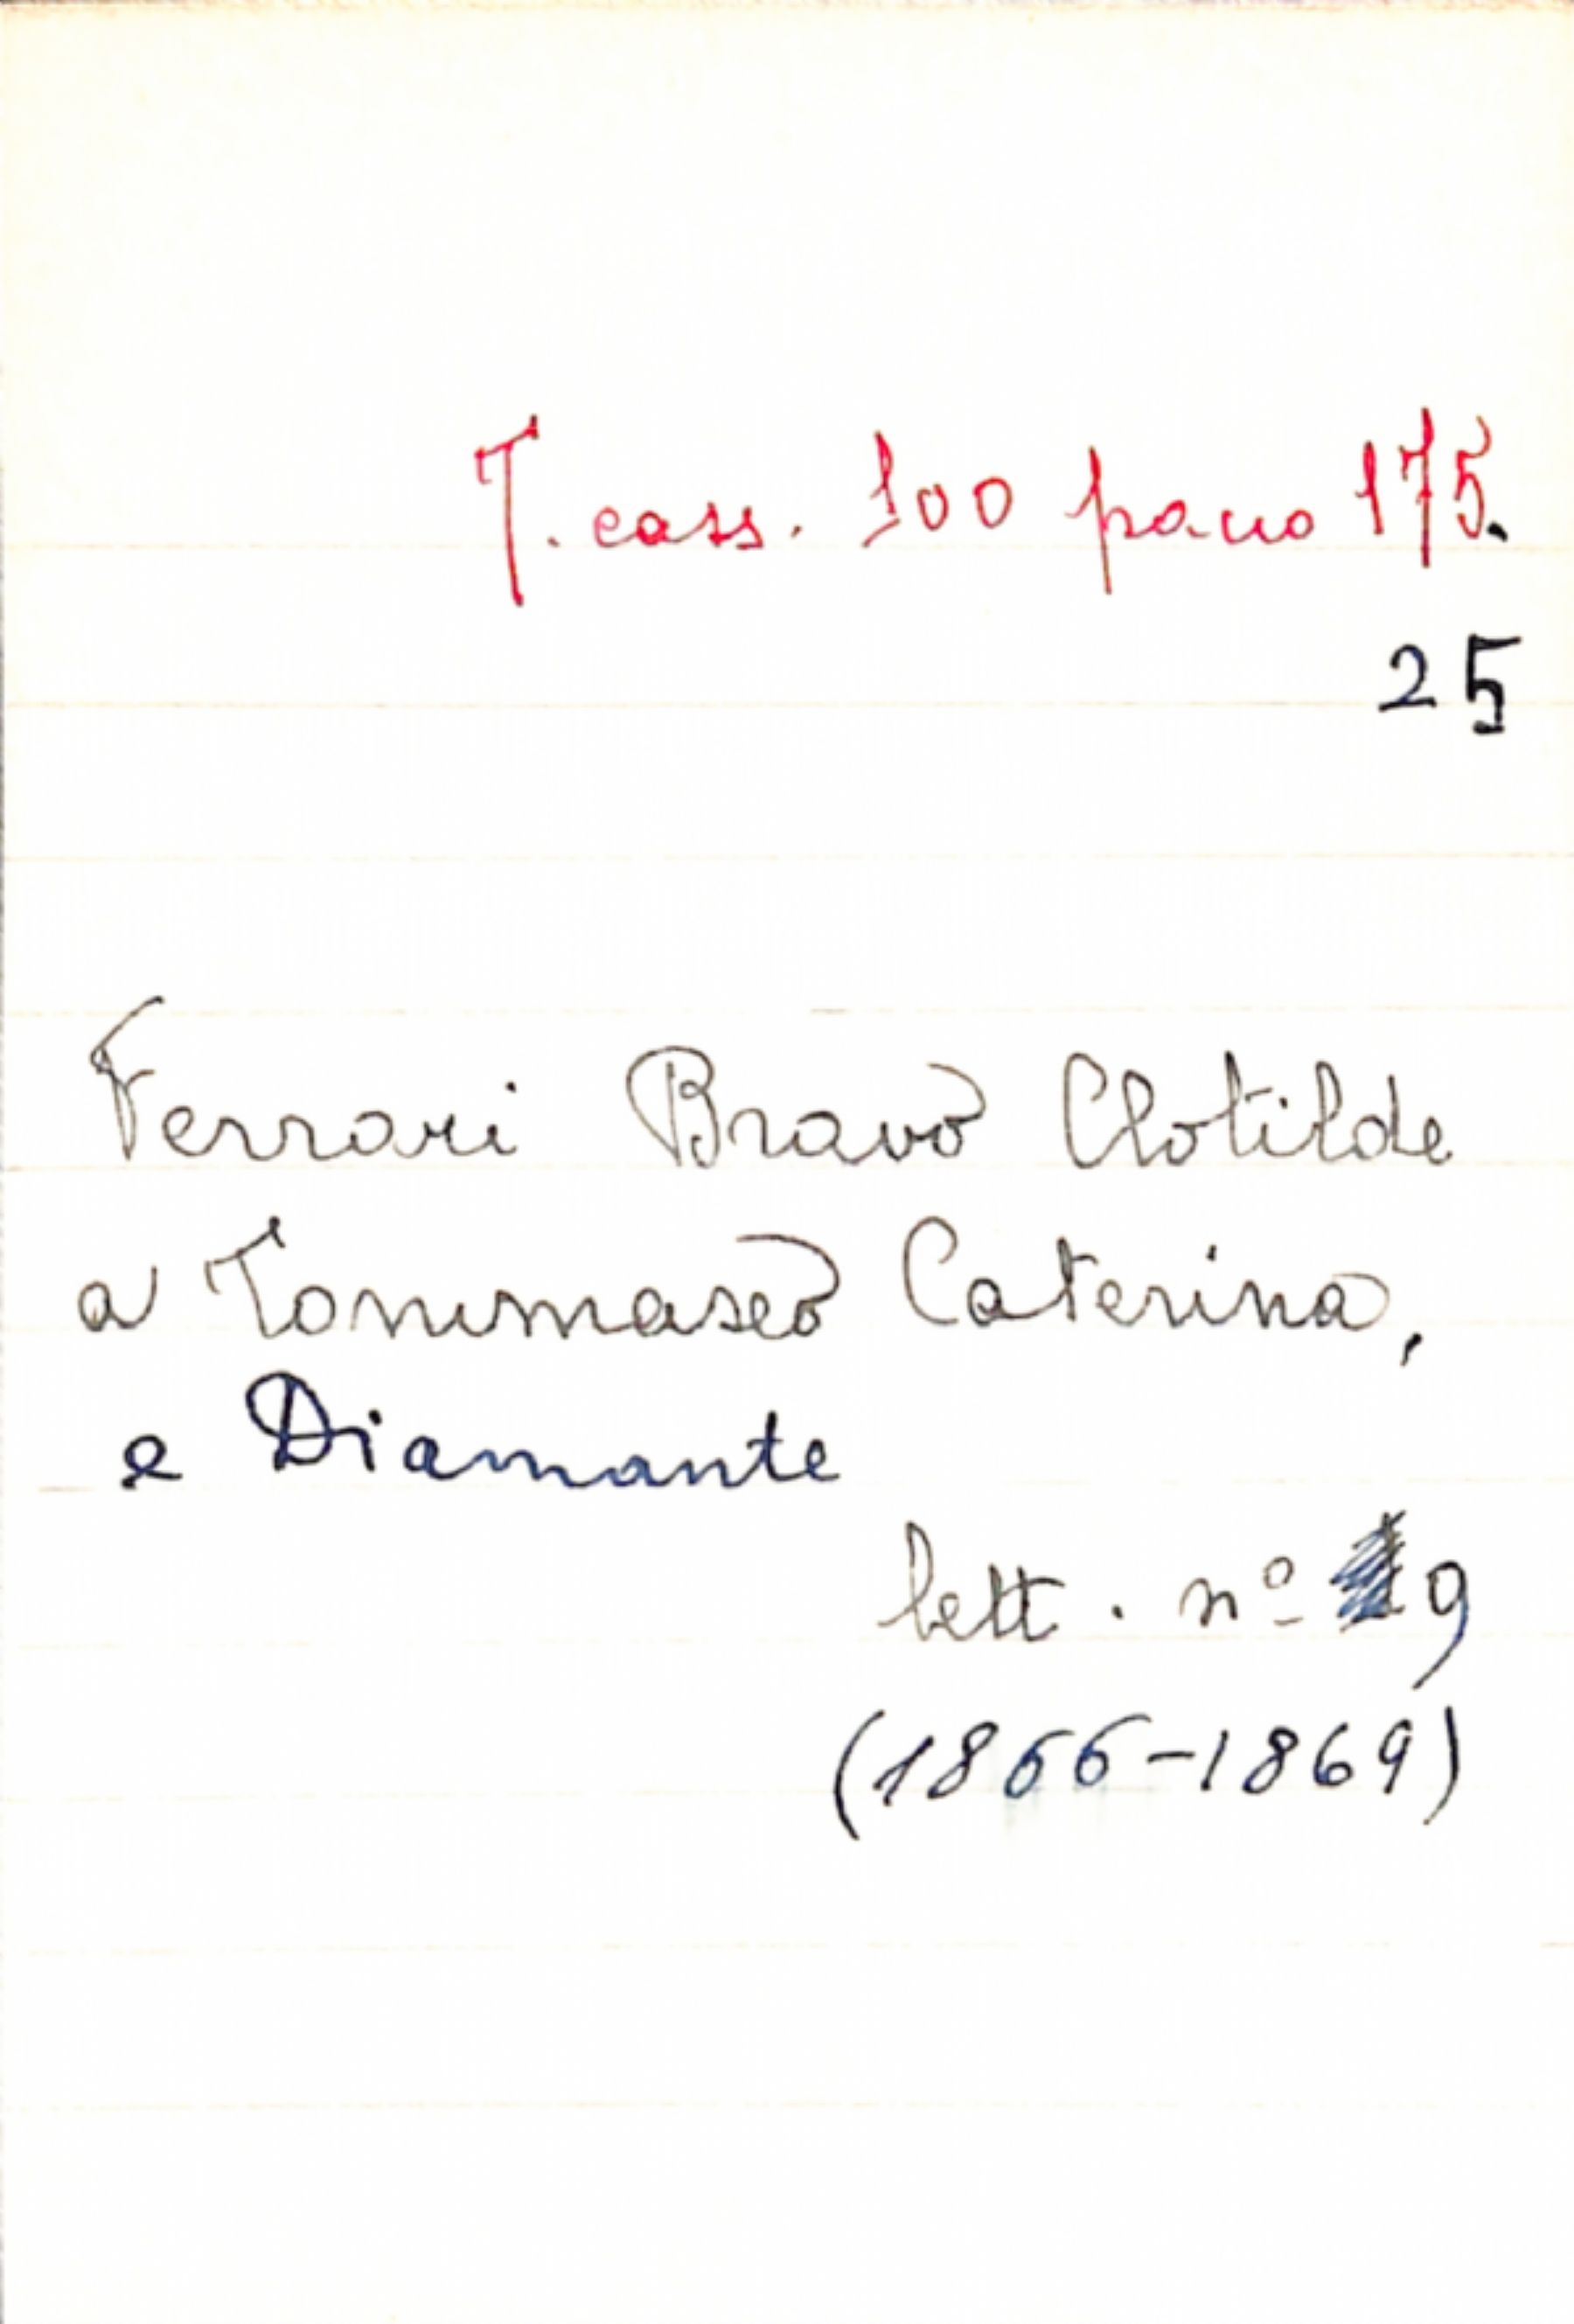 T. cass. 100 pacco 175.
25
Ferrari Bravo Clotilde
a Tommaseo Caterina,
e Diamante
lett. nº 9
(1866-1869)